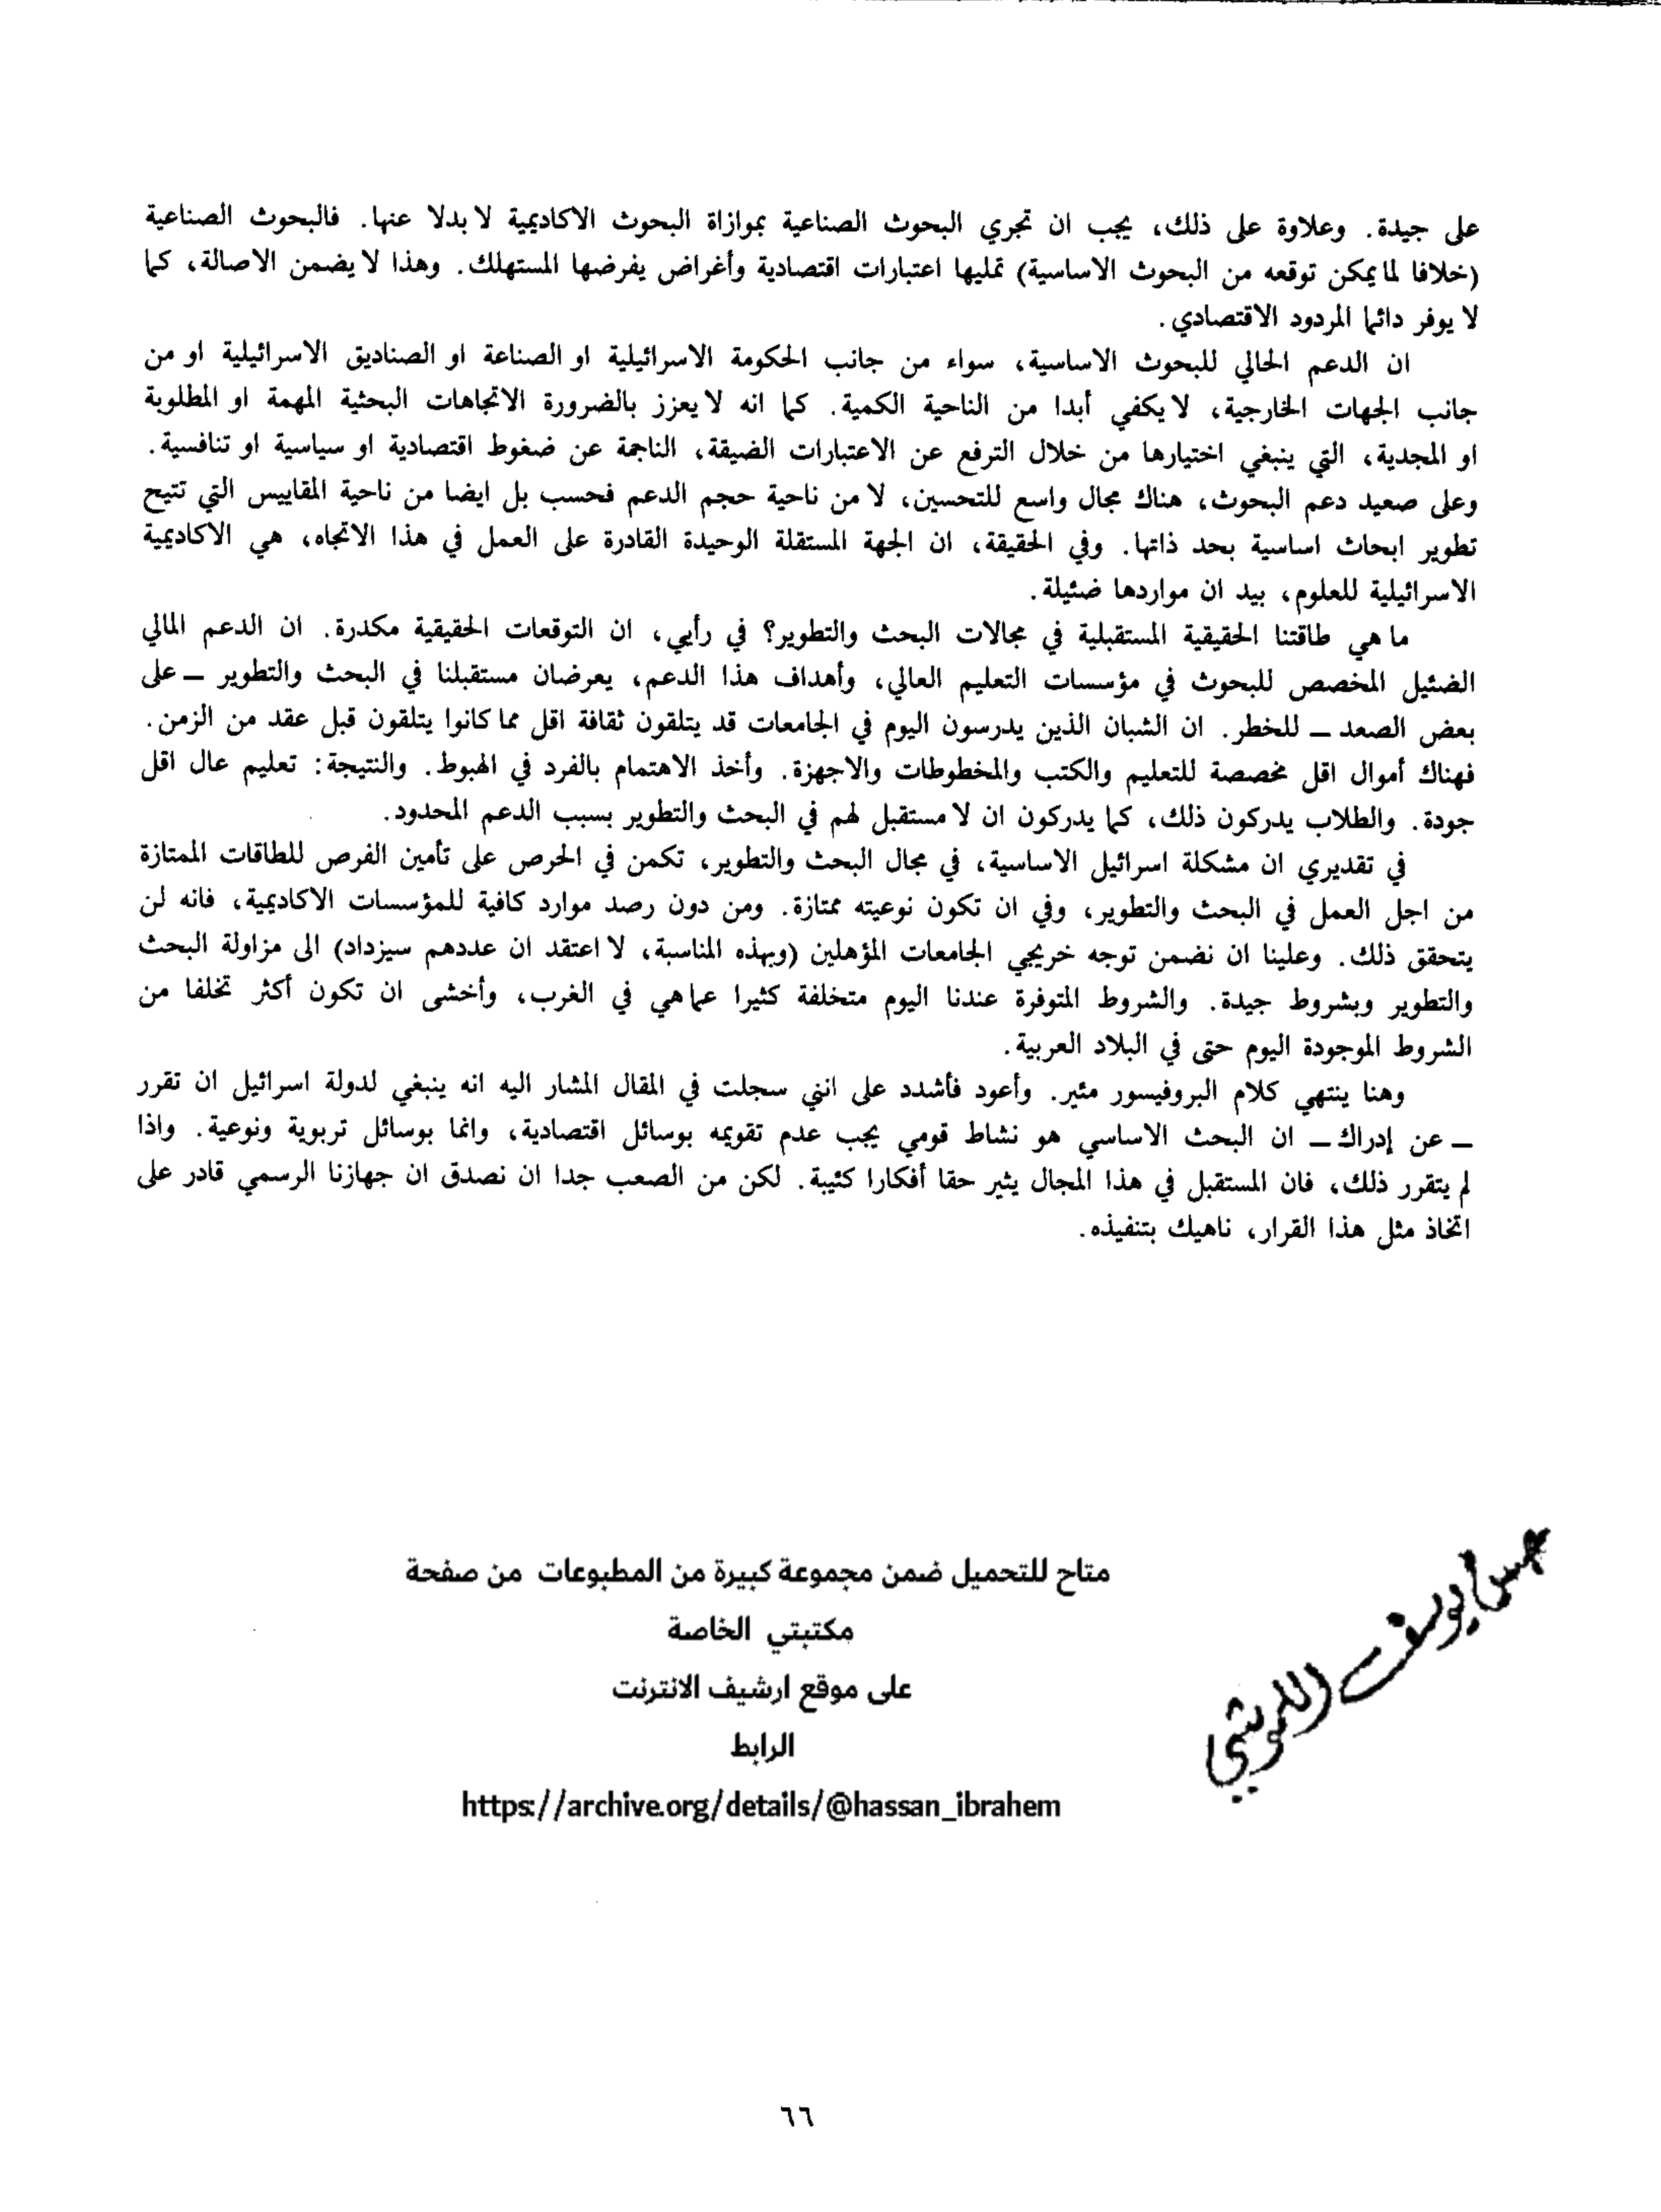 على جيدة. وعلاوة على ذلك، يجب ان تجري البحوث الصناعية بموازاة البحوث الاكاديمية لا بدلا عنها. فالبحوث الصناعية
(خلافا لما يمكن توقعه من البحوث الاساسية) تمليها اعتبارات اقتصادية وأغراض يفرضها المستهلك. وهذا لا يضمن الاصالة، كما
لا يوفر دائما المردود الاقتصادي.
ان الدعم الحالي للبحوث الاساسية، سواء من جانب الحكومة الاسرائيلية او الصناعة او الصناديق الاسرائيلية او من
جانب الجهات الخارجية، لا يكفي أبدا من الناحية الكمية. كما انه لا يعزز بالضرورة الاتجاهات البحثية المهمة او المطلوبة
او المجدية، التي ينبغي اختيارها من خلال الترفع عن الاعتبارات الضيقة، الناجمة عن ضغوط اقتصادية او سياسية او تنافسية.
وعلى صعيد دعم البحوث، هناك مجال واسع للتحسين، لا من ناحية حجم الدعم فحسب بل ايضا من ناحية المقاييس التي تتيح
تطوير ابحاث اساسية بحد ذاتها. وفي الحقيقة، ان الجهة المستقلة الوحيدة القادرة على العمل في هذا الاتجاه، هي الاكاديمية
الاسرائيلية للعلوم، بيد ان مواردها ضئيلة.
ما هي طاقتنا الحقيقية المستقبلية في مجالات البحث والتطوير؟ في رأيي، ان التوقعات الحقيقية مكدرة. ان الدعم المالي
الضئيل المخصص للبحوث في مؤسسات التعليم العالي، وأهداف هذا الدعم، يعرضان مستقبلنا في البحث والتطوير — على
بعض الصعد — للخطر. ان الشبان الذين يدرسون اليوم في الجامعات قد يتلقون ثقافة اقل مما كانوا يتلقون قبل عقد من الزمن.
فهناك أموال اقل مخصصة للتعليم والكتب والمخطوطات والاجهزة. وأخذ الاهتمام بالفرد في الهبوط. والنتيجة: تعليم عال اقل
جودة. والطلاب يدركون ذلك، كما يدركون ان لا مستقبل لهم في البحث والتطوير بسبب الدعم المحدود.
في تقديري ان مشكلة اسرائيل الاساسية، في مجال البحث والتطوير، تكمن في الحرص على تأمين الفرص للطاقات الممتازة
من اجل العمل في البحث والتطوير، وفي ان تكون نوعيته ممتازة. ومن دون رصد موارد كافية للمؤسسات الاكاديمية، فانه لن
يتحقق ذلك. وعلينا ان نضمن توجه خريجي الجامعات المؤهلين (وبهذه المناسبة، لا اعتقد ان عددهم سيزداد) الى مزاولة البحث
والتطوير وبشروط جيدة. والشروط المتوفرة عندنا اليوم متخلفة كثيرا عما هي في الغرب، وأخشى ان تكون أكثر تخلفا من
الشروط الموجودة اليوم حتى في البلاد العربية.
وهنا ينتهي كلام البروفيسور مئير. وأعود فأشدد على انني سجلت في المقال المشار اليه انه ينبغي لدولة اسرائيل ان تقرر
— عن إدراك — ان البحث الاساسي هو نشاط قومي يجب عدم تقويمه بوسائل اقتصادية، وانما بوسائل تربوية ونوعية. واذا
لم يتقرر ذلك، فان المستقبل في هذا المجال يثير حقا أفكارا كئيبة. لكن من الصعب جدا ان نصدق ان جهازنا الرسمي قادر على
اتخاذ مثل هذا القرار، ناهيك بتنفيذه.
متاح للتحميل ضمن مجموعة كبيرة من المطبوعات من صفحة
مكتبتي الخاصة
على موقع ارشيف الانترنت
الرابط
https://archive.org/details/@hassan_ibrahem
٦٦